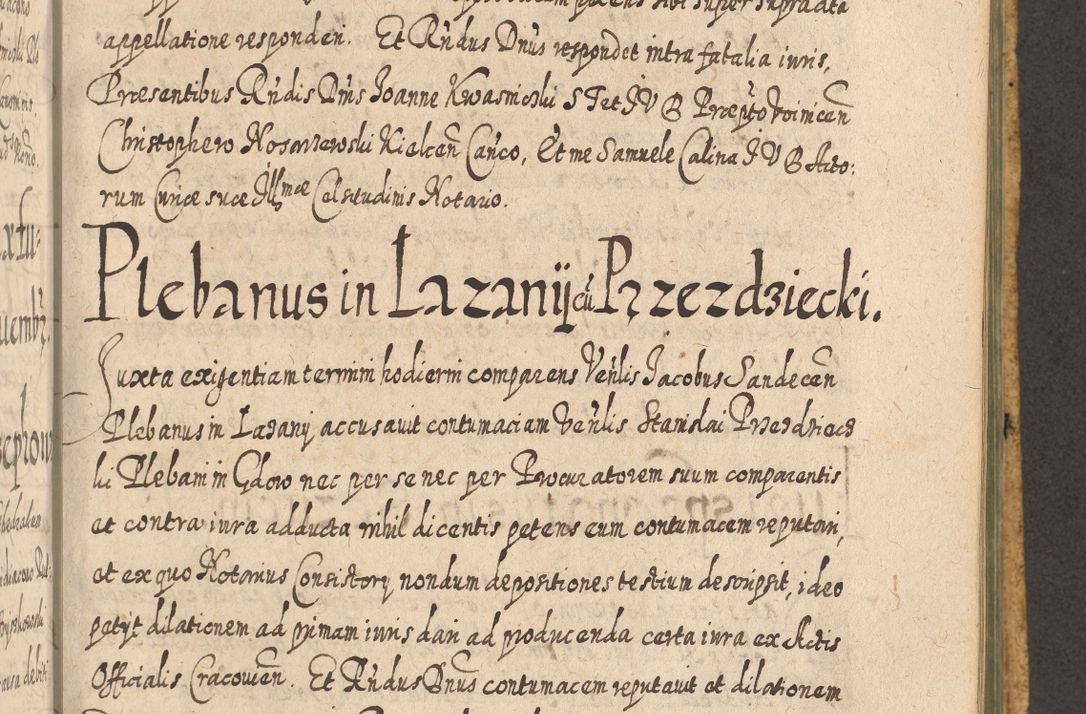 appellatione responderi. Et Rńdus Dnús respondet intra fatalia iuris,
Præsentibus Rńdis Dńis Joanne Kwasnicki S T et J V D Præpto Woiniceń
Christophero Nosarzewski Kielceń Cańco, Et me Samuele Calina J V D Acto:
rum Curiæ suæ Illmæ Celsitudinis Notario.
Plebanus in Lazanij cu Przezdziecki.
Juxta exigentiam termini hodierni comparens Venlis Jacobus Sandeceń
Plebanus in Lazany accusavit contumaciam Venlis Stanislai Przezdziec
ki Plebani in Gdow nec per se nec per Procuratorem suum comparentis
et contra iura adducta nihil dicentis petens eum contumacem reputari,
et ex quo Notarius Consistory nondum depositiones testium descripsit, ideo
petijt dilationem ad primam iuris dari ad producenda certa iura ex Actis
Officialis Cracovień. Et Rńdus Dnús contumacem reputavit et dilationem